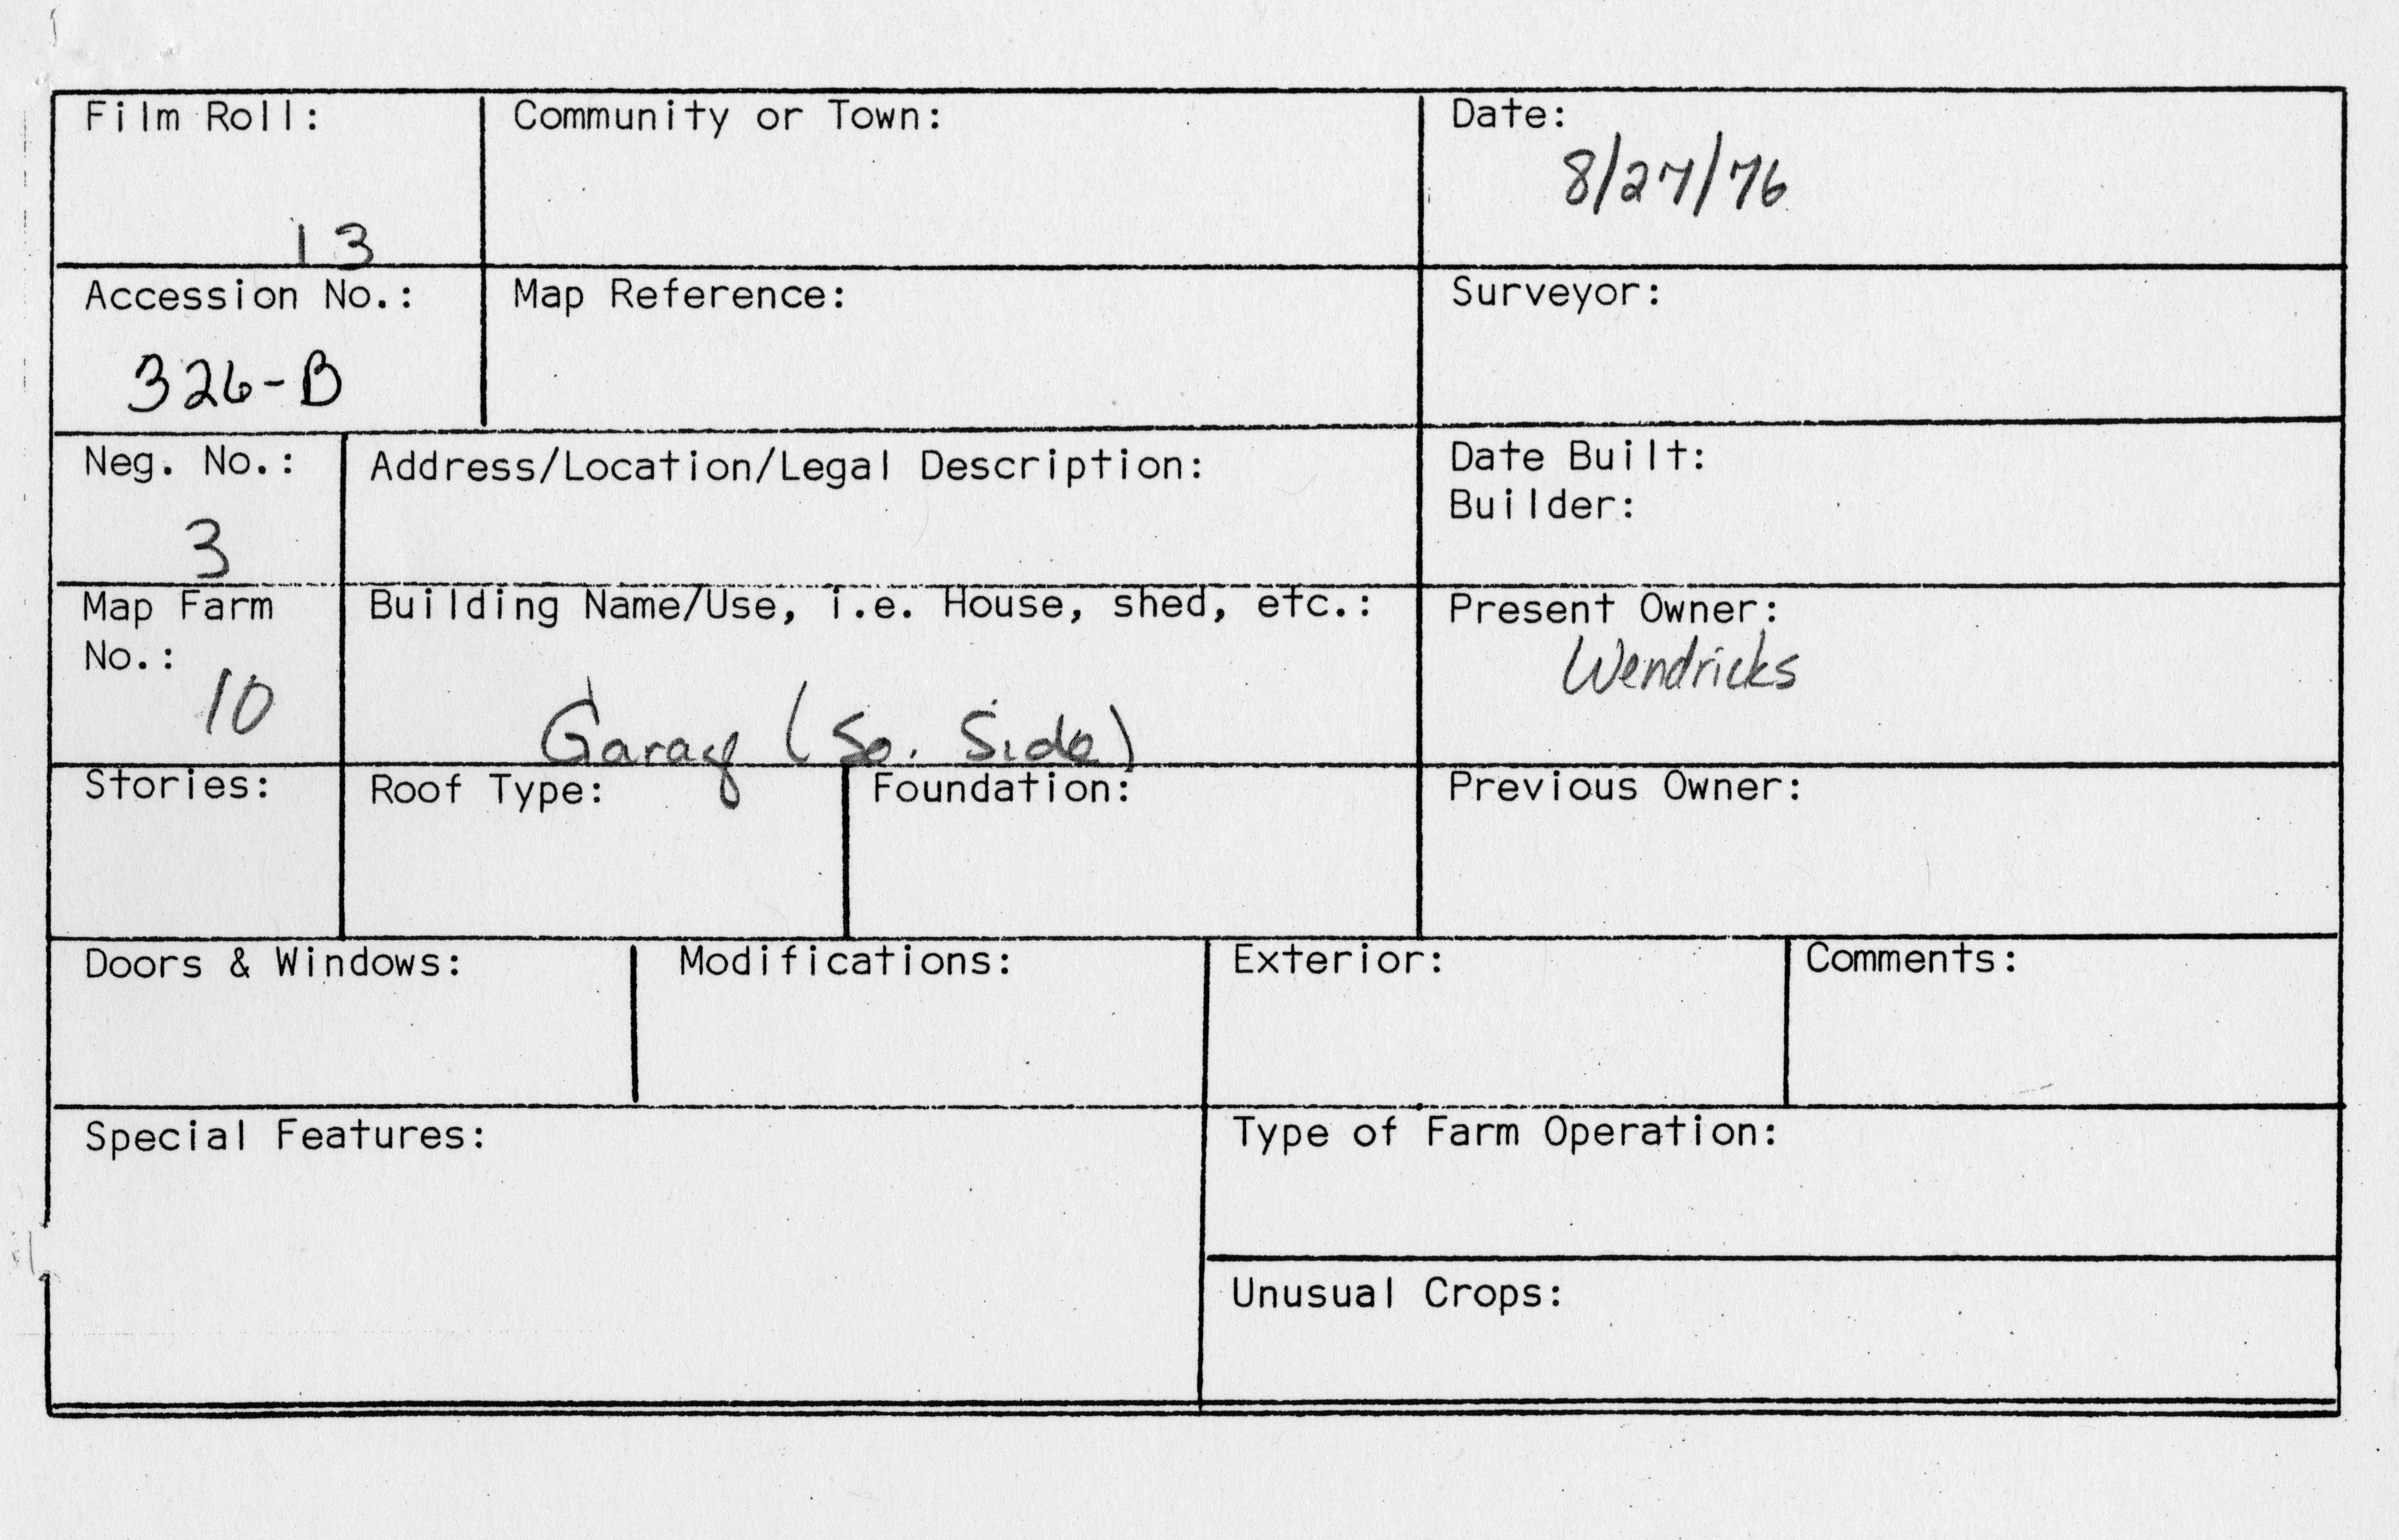 Film Roll:
13
Community or Town:
Date:
8/27/76
Accession No.:
326-B
Map Reference:
Surveyor:
Neg. No.:
3
Address/Location/Legal Description:
Date Built:
Builder:
Map Farm
No.:
10
Building Name/Use, i.e. House, shed, etc.:
Garage (So. Side)
Present Owner:
Wendricks
Stories:
Roof Type:
Foundation:
Previous Owner:
Doors & Windows:
Modifications:
Exterior:
Comments:
Special Features:
Type of Farm Operation:
Unusual Crops: